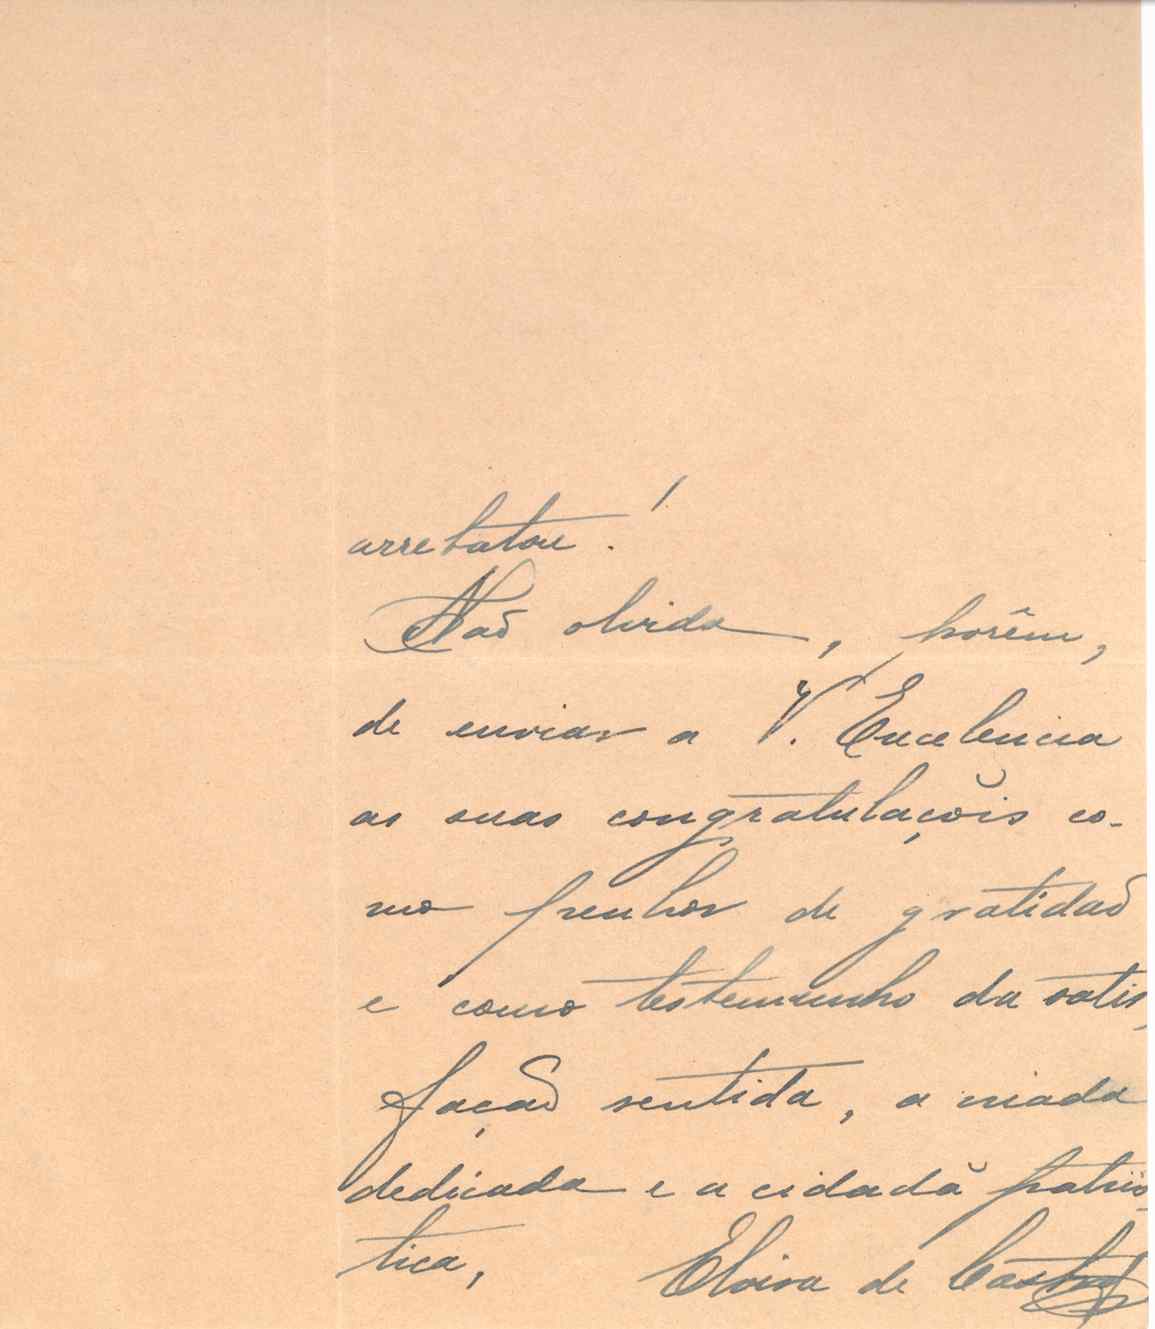 arrebatou!
Não olvida, porêm,
de enviar a V. Excelencia
as suas congratulaçõis co-
mo penhor de gratidaõ
e como testemunho da satis-
façaõ sentida, a criada
dedicada e a cidadã patrio-
tica, Eloisa de Castro